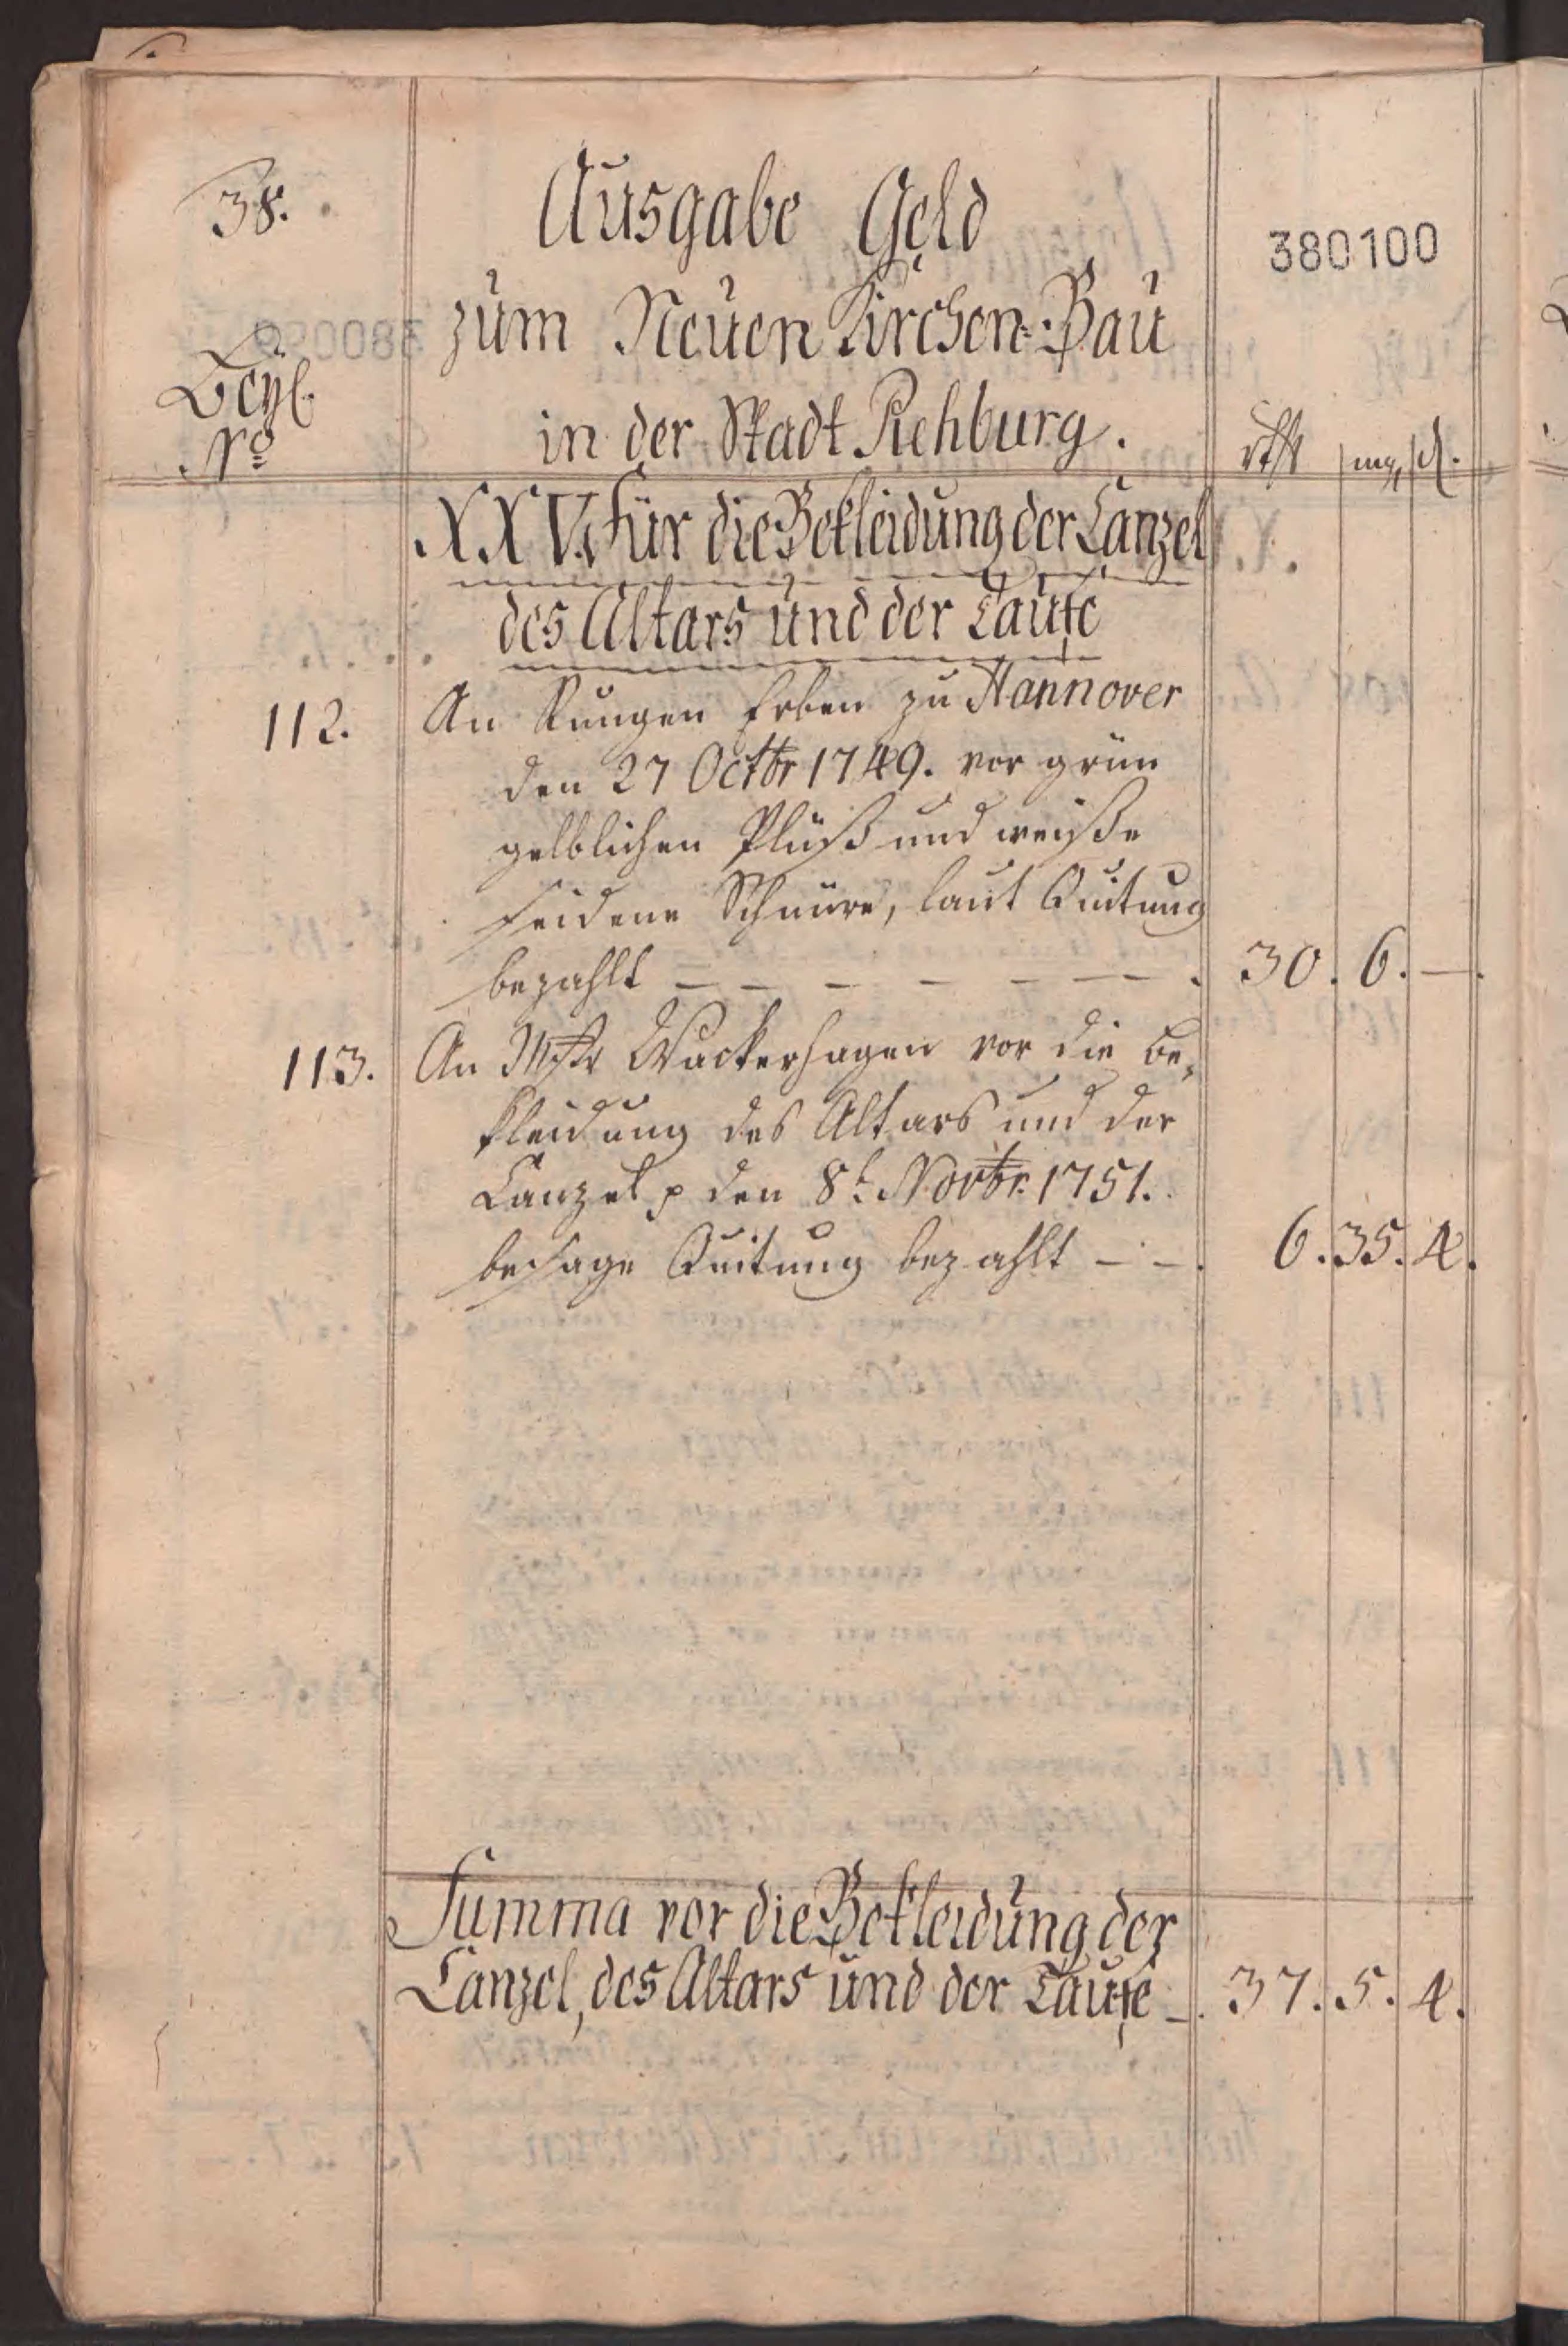 38.
Ausgabe Geld
380100
zum Neuen Kirchen-Bau
Beyl.
in der Stadt Rehburg.
No
rthl mg d.
XXV. Für die Bekleidung der Canzel
des Altars und der Taufe
112. An Rungen Erben zu Hannover
den 27 Octbr 1749. vor grün
gelblichen Plüß und weiße
seidene Schnüre, laut Quitung
bezahlt — — — — — — . 30. 6. —.
113. An Mstr Wackerhagen vor die Be=
kleidung des Altars und der
Canzel p den 8t. Novbr. 1751.
besage Quitung bezahlt — — . 6. 35. 4.
Summa vor die Bekleidung der
Canzel, des Altars und der Taufe —. 37. 5. 4.